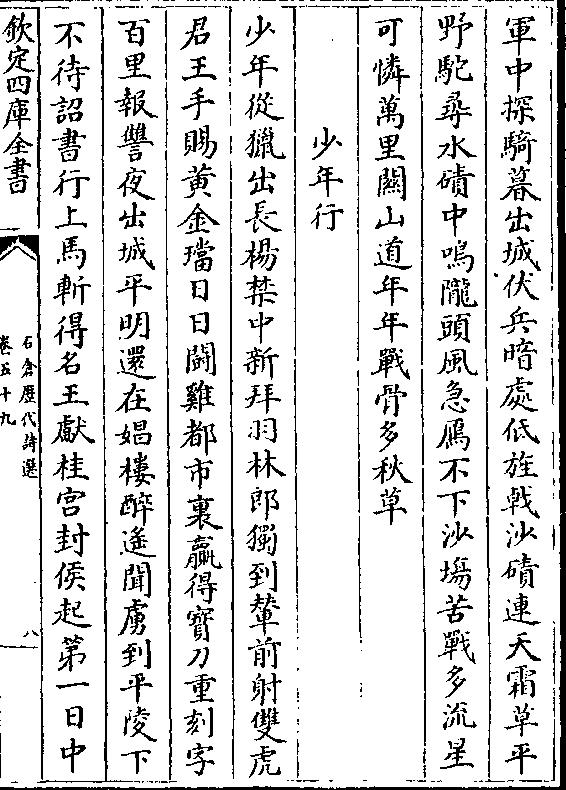 軍中探騎暮出城伏兵暗處低旌㦸沙磧連天霜草平
野駝尋水磧中鳴隴頭風急鴈不下沙塲苦戰多流星
可憐萬里關山道年年戰骨多秋草
少年行
少年從獵出長楊禁中新拜羽林郎獨到輦前射雙虎
君王手賜黄金璫日日鬬雞都市裏贏得寳刀重刻字
百里報讐夜出城平明還在娼樓醉遙聞虜到平陵下
不待詔書行上馬斬得名王獻桂宫封侯起第一日中
欽定四庫全書
石倉歴代詩選
卷五十九
八